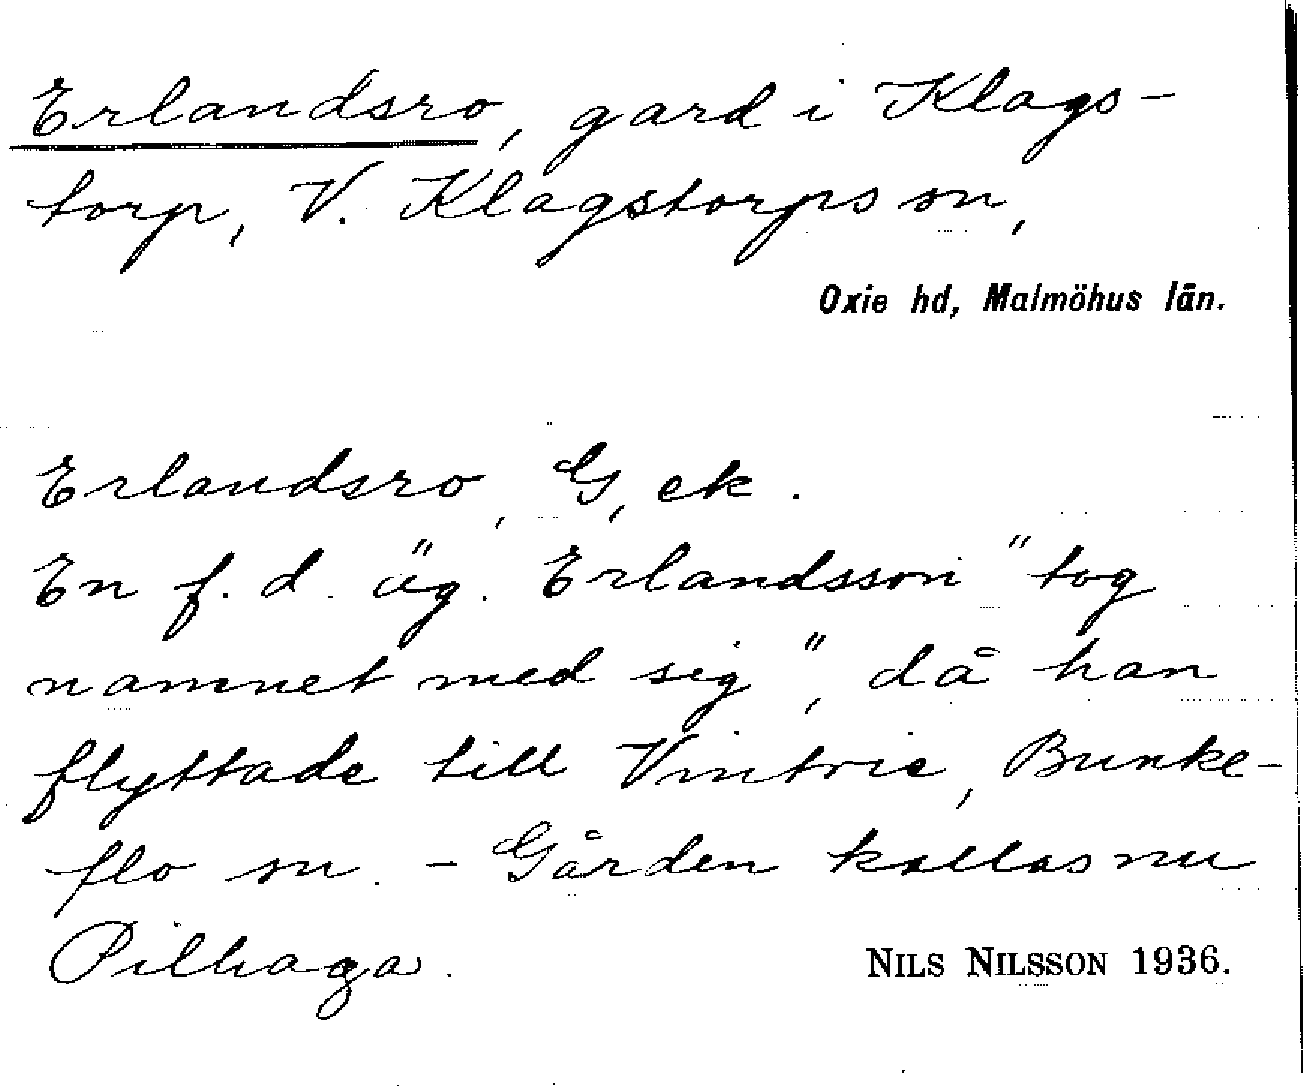 Erlandsro, gard i Klags-
torp, V. Klagstorps sn,
Oxie hd, Malmöhus län.
Erlandsro, G, ek.
En f. d. äg. Erlandsson "tog
namnet med sig", då han
flyttade till Vintrie, Bunke-
flo sn. - Gården kallas nu
Pilhaga.
NILS NILSSON 1936.